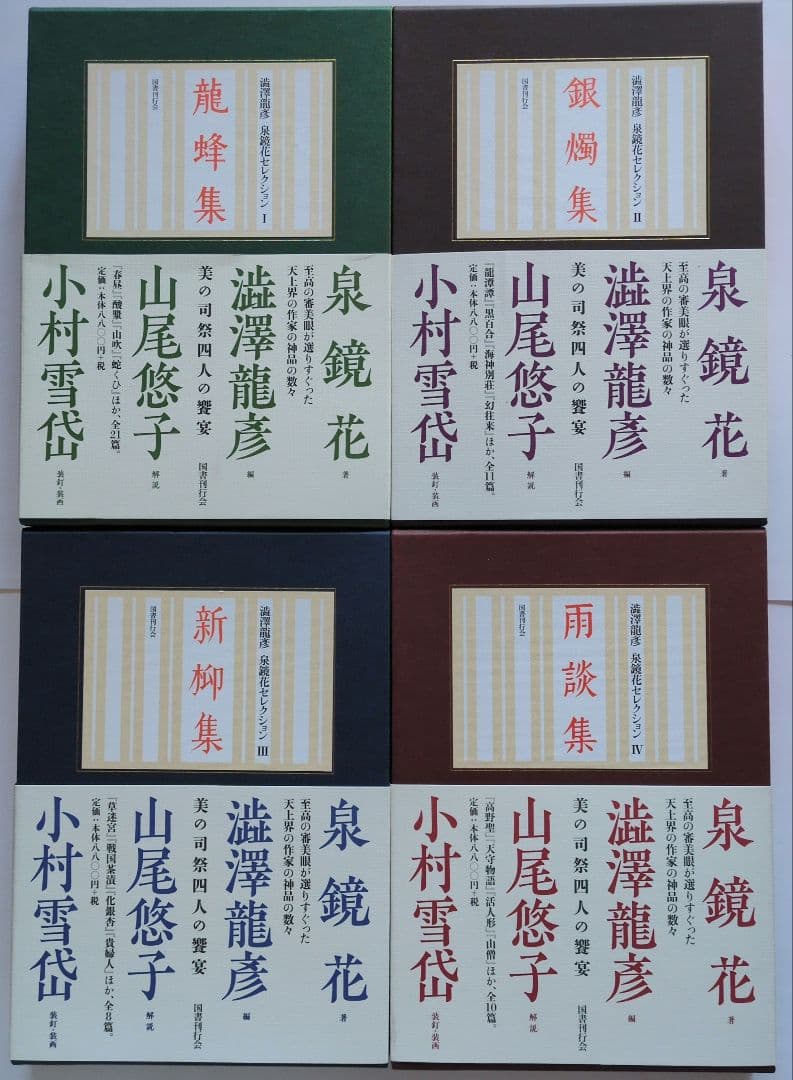 澁澤龍彥 泉鏡花セレクション I
龍蜂集
国書刊行会
泉鏡花 著
至高の審美眼が選りすぐった
天上界の作家の神品の数々
澁澤龍彥 編
美の司祭四人の饗宴 国書刊行会
山尾悠子 解説
『春昼』『酸漿』『山吹』『蛇くひ』ほか、全21篇。
定価:本体八八〇〇円+税
小村雪岱 装釘・装画
澁澤龍彥 泉鏡花セレクション II
銀燭集
国書刊行会
泉鏡花 著
至高の審美眼が選りすぐった
天上界の作家の神品の数々
澁澤龍彥 編
美の司祭四人の饗宴 国書刊行会
山尾悠子 解説
『龍潭譚』『黒百合』『海神別荘』『幻往来』ほか、全11篇。
定価:本体八八〇〇円+税
小村雪岱 装釘・装画
澁澤龍彥 泉鏡花セレクション III
新柳集
国書刊行会
泉鏡花 著
至高の審美眼が選りすぐった
天上界の作家の神品の数々
澁澤龍彥 編
美の司祭四人の饗宴 国書刊行会
山尾悠子 解説
『草迷宮』『戦国茶漬』『化銀杏』『貴婦人』ほか、全8篇。
定価:本体八八〇〇円+税
小村雪岱 装釘・装画
澁澤龍彥 泉鏡花セレクション IV
雨談集
国書刊行会
泉鏡花 著
至高の審美眼が選りすぐった
天上界の作家の神品の数々
澁澤龍彥 編
美の司祭四人の饗宴 国書刊行会
山尾悠子 解説
『高野聖』『天守物語』『活人形』『山僧』ほか、全10篇。
定価:本体八八〇〇円+税
小村雪岱 装釘・装画